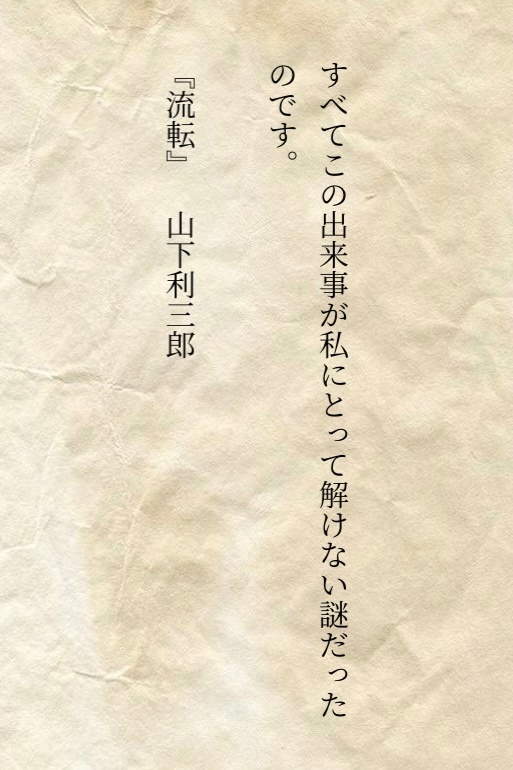 すべてこの出来事が私にとって解けない謎だった
のです。
『流転』　山下利三郎